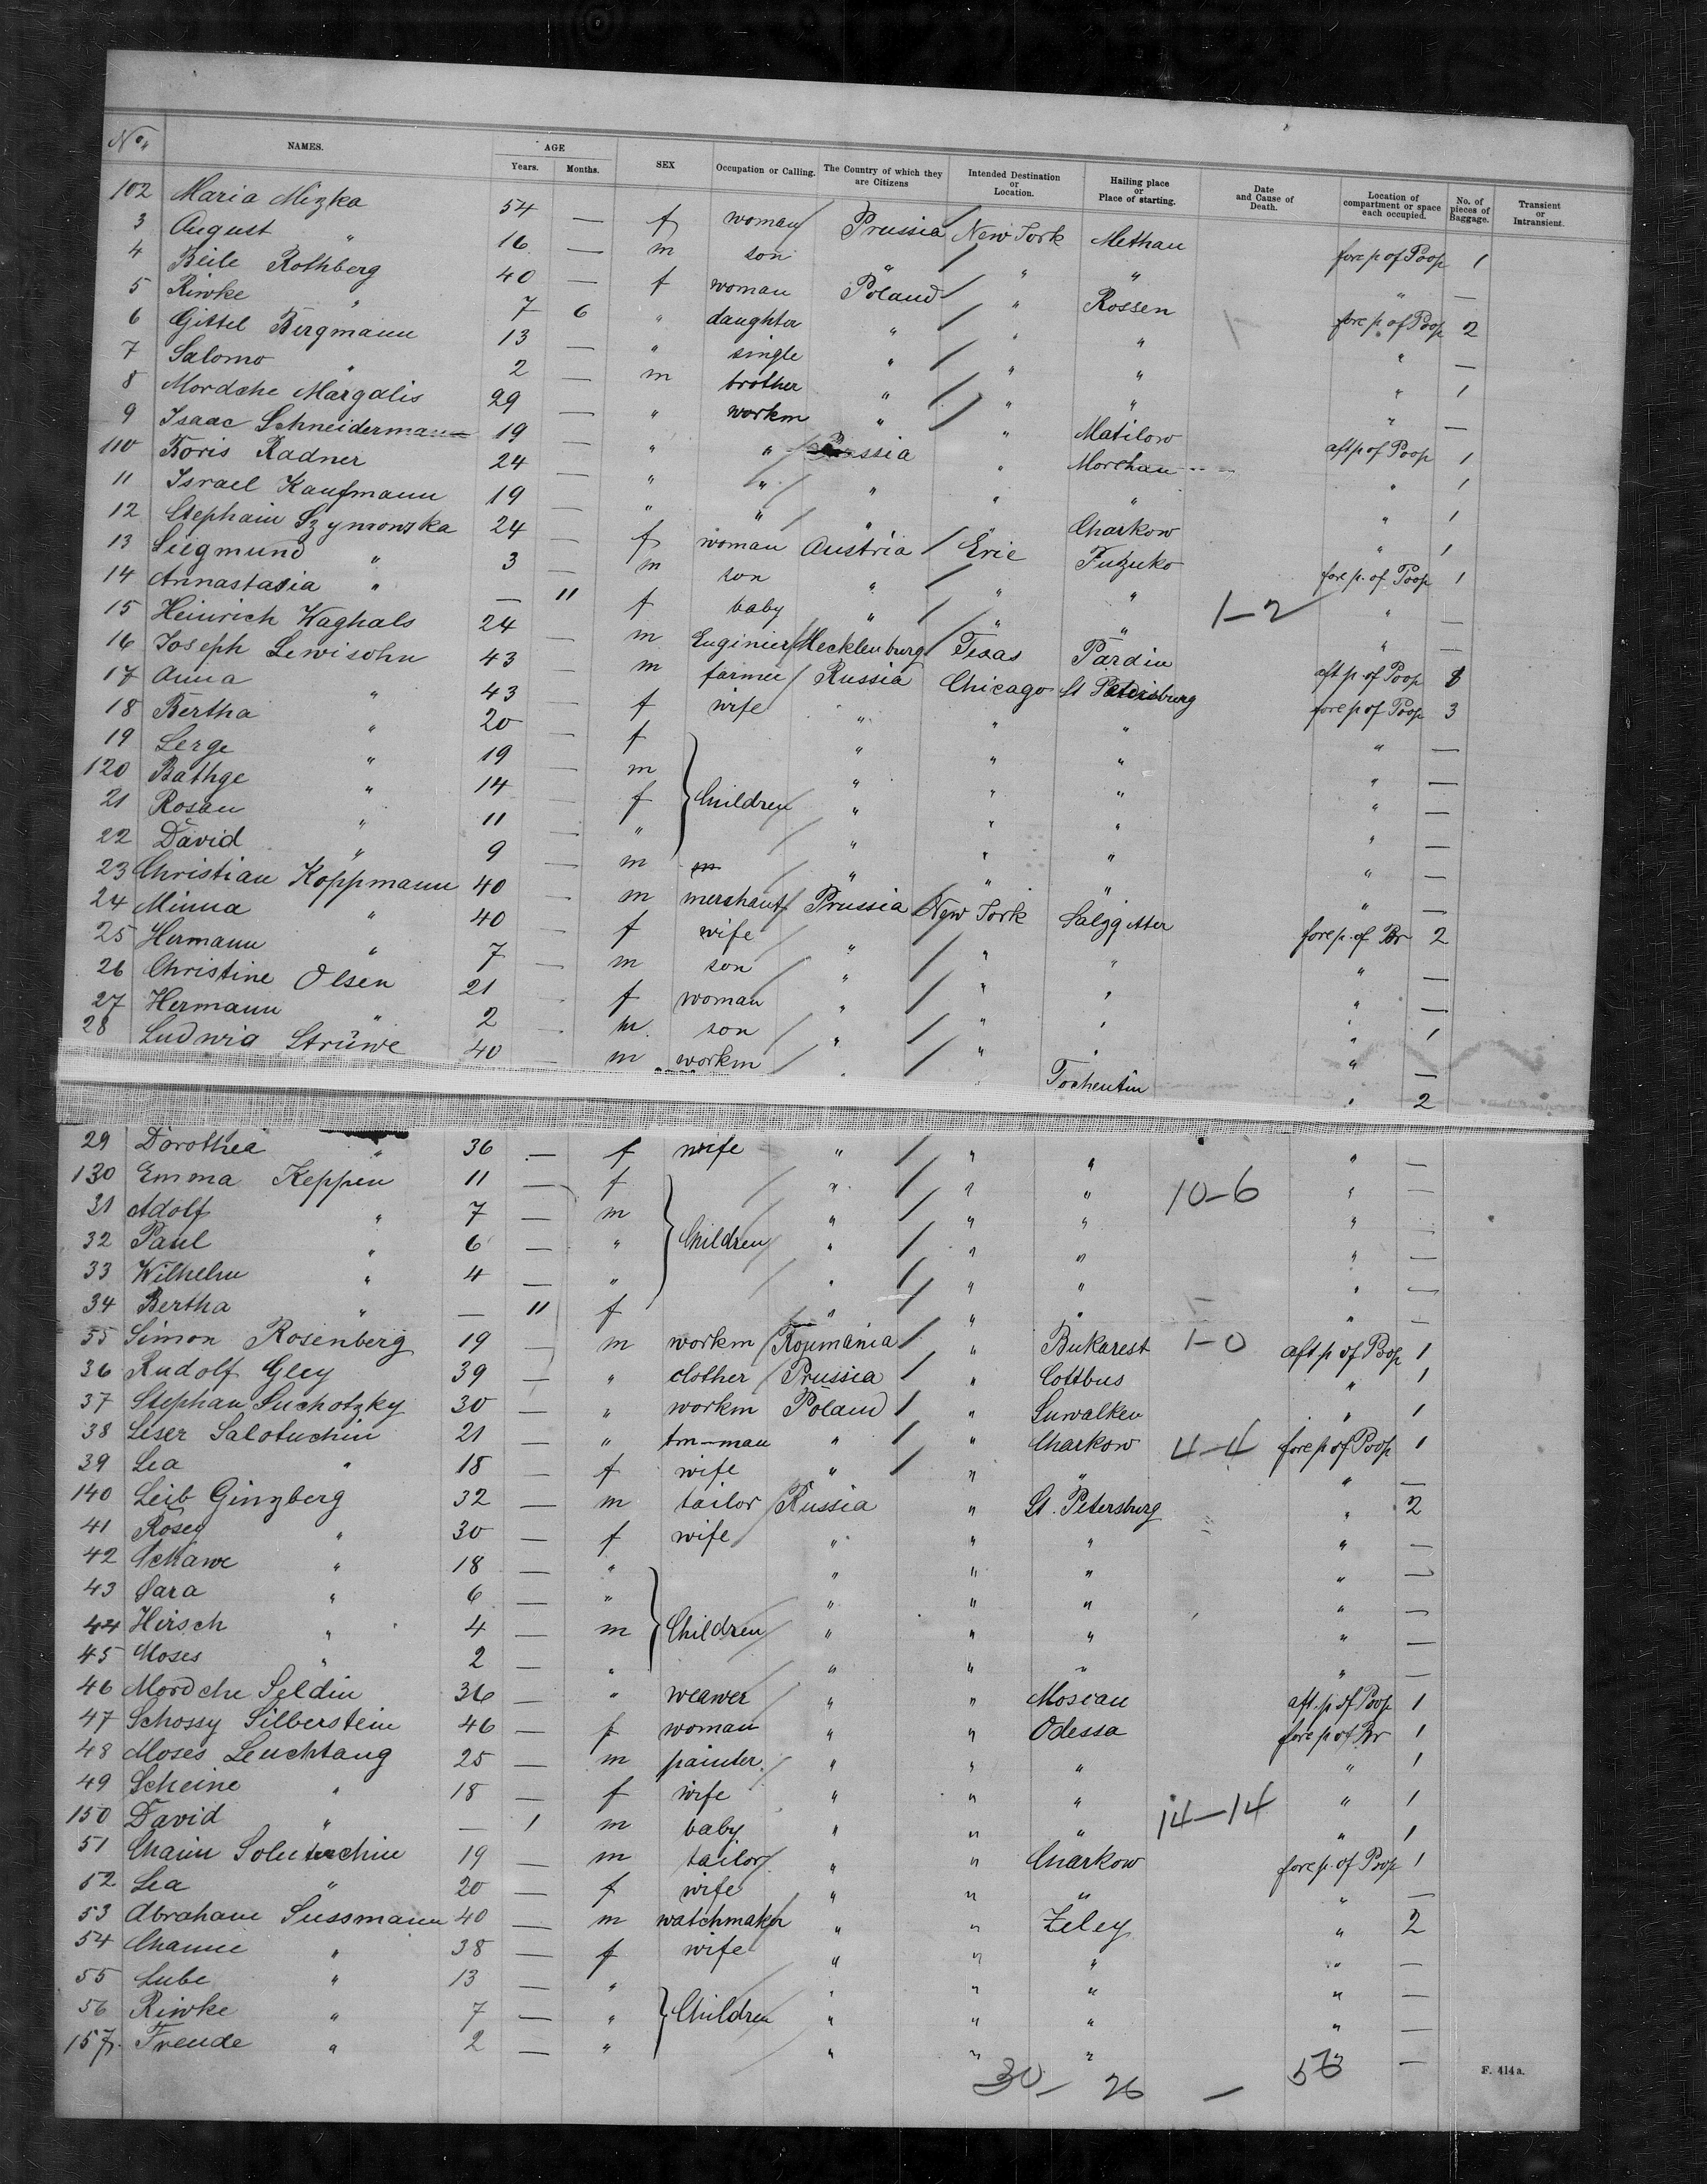 No. NAMES. AGE Years. Months. SEX Occupation or Calling. The Country of which they are Citizens Intended Destination or Location. Hailing place or Place of starting. Date and Cause of Death. Location of compartment or space each occupied. No. of pieces of Baggage. Transient or Intransient.
102 Maria Mizka 54 — f woman Prussia New York Methau fore p of Poop 1
3 August " 16 — m son " " " " —
4 Beile Rothberg 40 — f woman Poland " Rossen fore p. of Poop 2
5 Riwke " 7 6 " daughter " " " " —
6 Gittel Bergmann 13 — " single " " " " 1
7 Salomo " 2 — m brother " " " " —
8 Mordche Margalis 29 — " workm " " Matilow aft p of Poop 1
9 Isaac Schneidermann 19 — " " Russia " Morchau " 1
110 Boris Radner 24 — " " " " " " 1
11 Israel Kaufmann 19 — " " " " Charkow " 1
12 Stephain Szymonzka 24 — f woman Austria Erie Fuzuko fore p. of Poop 1
13 Siegmund " 3 — m son " " " " —
14 Annastasia " — 11 f baby " " " 1-2 " —
15 Heinrich Waghals 24 — m Enginier Mecklenburg Texas Pardin aft p of Poop 1
16 Joseph Lewisohn 43 — m farmer Russia Chicago St Petersburg fore p of Poop 3
17 Anna " 43 — f wife " " " " —
18 Bertha " 20 — f " " " " —
19 Serge " 19 — m " " " " —
120 Bathge " 14 — f Children " " " " —
21 Rosan " 11 — " " " " " —
22 David " 9 — m m " " " " —
23 Christian Koppmann 40 — m merchant Prussia New York Salzgitter fore p. of Br 2
24 Minna " 40 — f wife " " " " —
25 Hermann " 7 — m son " " " " —
26 Christine Olsen 21 — f woman " " " " 1
27 Hermann " 2 — m son " " " " —
28 Ludwig Strüwe 40 — m workm " " Tochentin " 2
29 Dorothea " 36 — f wife " " " " —
130 Emma Keppen 11 — f " " " 10-6 " —
31 Adolf " 7 — m " " " " —
32 Paul " 6 — " Children " " " " —
33 Wilhelm " 4 — " " " " " —
34 Bertha " — 11 f " " " " —
35 Simon Rosenberg 19 — m workm Roumania " Bukarest 1-0 aft p of Poop 1
36 Rudolf Gley 39 — " clother Prussia " Cottbus " 1
37 Stephan Suchotzky 30 — " workm Poland " Suwalken " 1
38 Leiser Salotuchin 21 — " tm-man " " Charkow 4-4 fore p of Poop 1
39 Lea " 18 — f wife " " " " —
140 Leib Ginzberg 32 — m tailor Russia " St. Petersburg " 2
41 Rosey " 30 — f wife " " " " —
42 Schawe " 18 — " " " " " —
43 Sara " 6 — " " " " " —
44 Hirsch " 4 — m Children " " " " —
45 Moses " 2 — " " " " " —
46 Mordche Seldin 36 — " weawer " " Moscau aft. p of Poop 1
47 Schossy Silberstein 46 — f woman " " Odessa fore p of Br 1
48 Moses Leuchtang 25 — m painter " " " " 1
49 Scheine " 18 — f wife " " " " 1
150 David " — 1 m baby " " " 14-14 " 1
51 Chaim Solutuchin 19 — m tailor " " Charkow fore p. of Poop 1
52 Lea " 20 — f wife " " " " —
53 Abraham Sussmann 40 — m watchmaker " " Zeley " 2
54 Channe " 38 — f wife " " " " —
55 Lube " 13 — " " " " " —
56 Riwke " 7 — " Children " " " " —
157. Freude " 2 — " " " " " —
30 — 26 — 56
F. 414a.